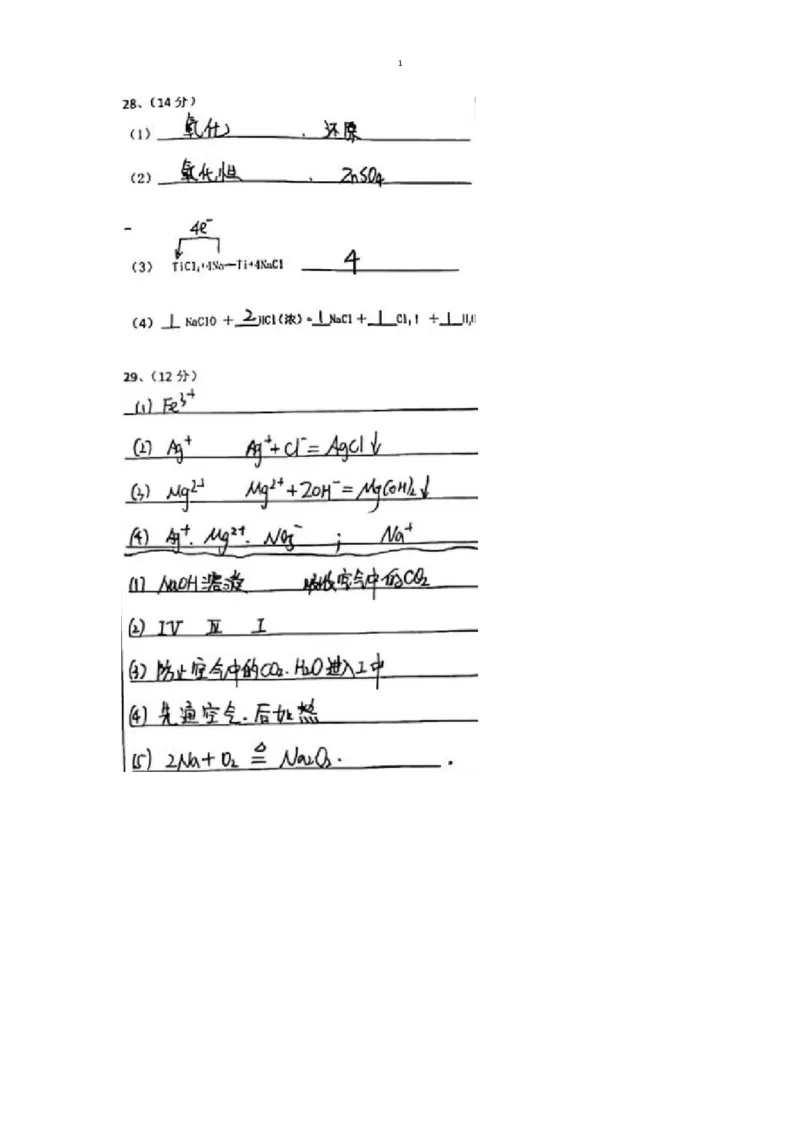 1
28、（14 分）
（1） 氧化 、 还原
（2） 氧化性 、 ZnSO₄
4e⁻
（3） TiCl₄+4Na—Ti+4NaCl 4
（4） 1 NaClO + 2 HCl(浓)= 1 NaCl + 1 Cl₂↑ + 1 H₂O
29、（12 分）
(1) Fe³⁺
(2) Ag⁺ Ag⁺+Cl⁻=AgCl↓
(3) Mg²⁺ Mg²⁺+2OH⁻=Mg(OH)₂↓
(4) Ag⁺、Mg²⁺、NO₃⁻ ; Na⁺
(1) NaOH溶液 吸收空气中的CO₂
(2) IV III I
(3) 防止空气中的CO₂、H₂O进入I中
(4) 先通空气、后加热
(5) 2Na+O₂ ≜ Na₂O₂ .